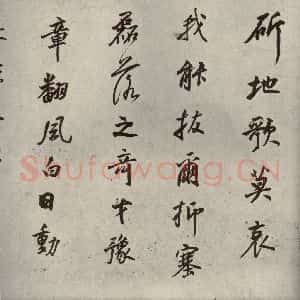 斫地歌莫哀
我能拔爾抑塞
磊落之奇才豫
章翻風白日動
Shufawang.CN